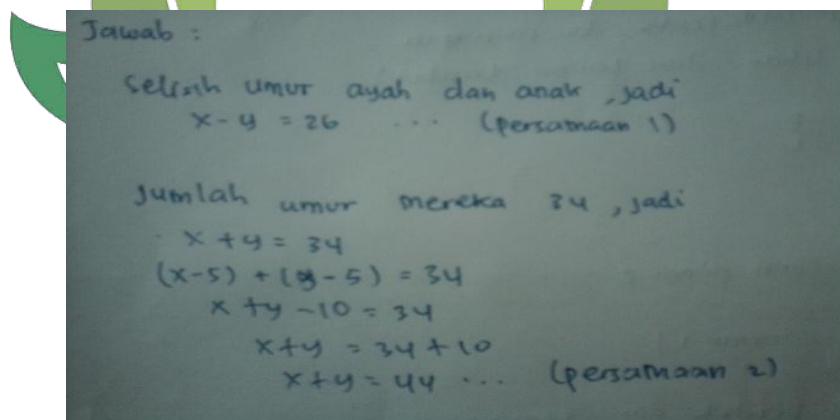 Jawab :
Selisih umur ayah dan anak, jadi
x - y = 26 ... (persamaan 1)
Jumlah umur mereka 34, jadi
x + y = 34
(x-5) + (y-5) = 34
x + y - 10 = 34
x+y = 34 + 10
x+y = 44 ... (persamaan 2)